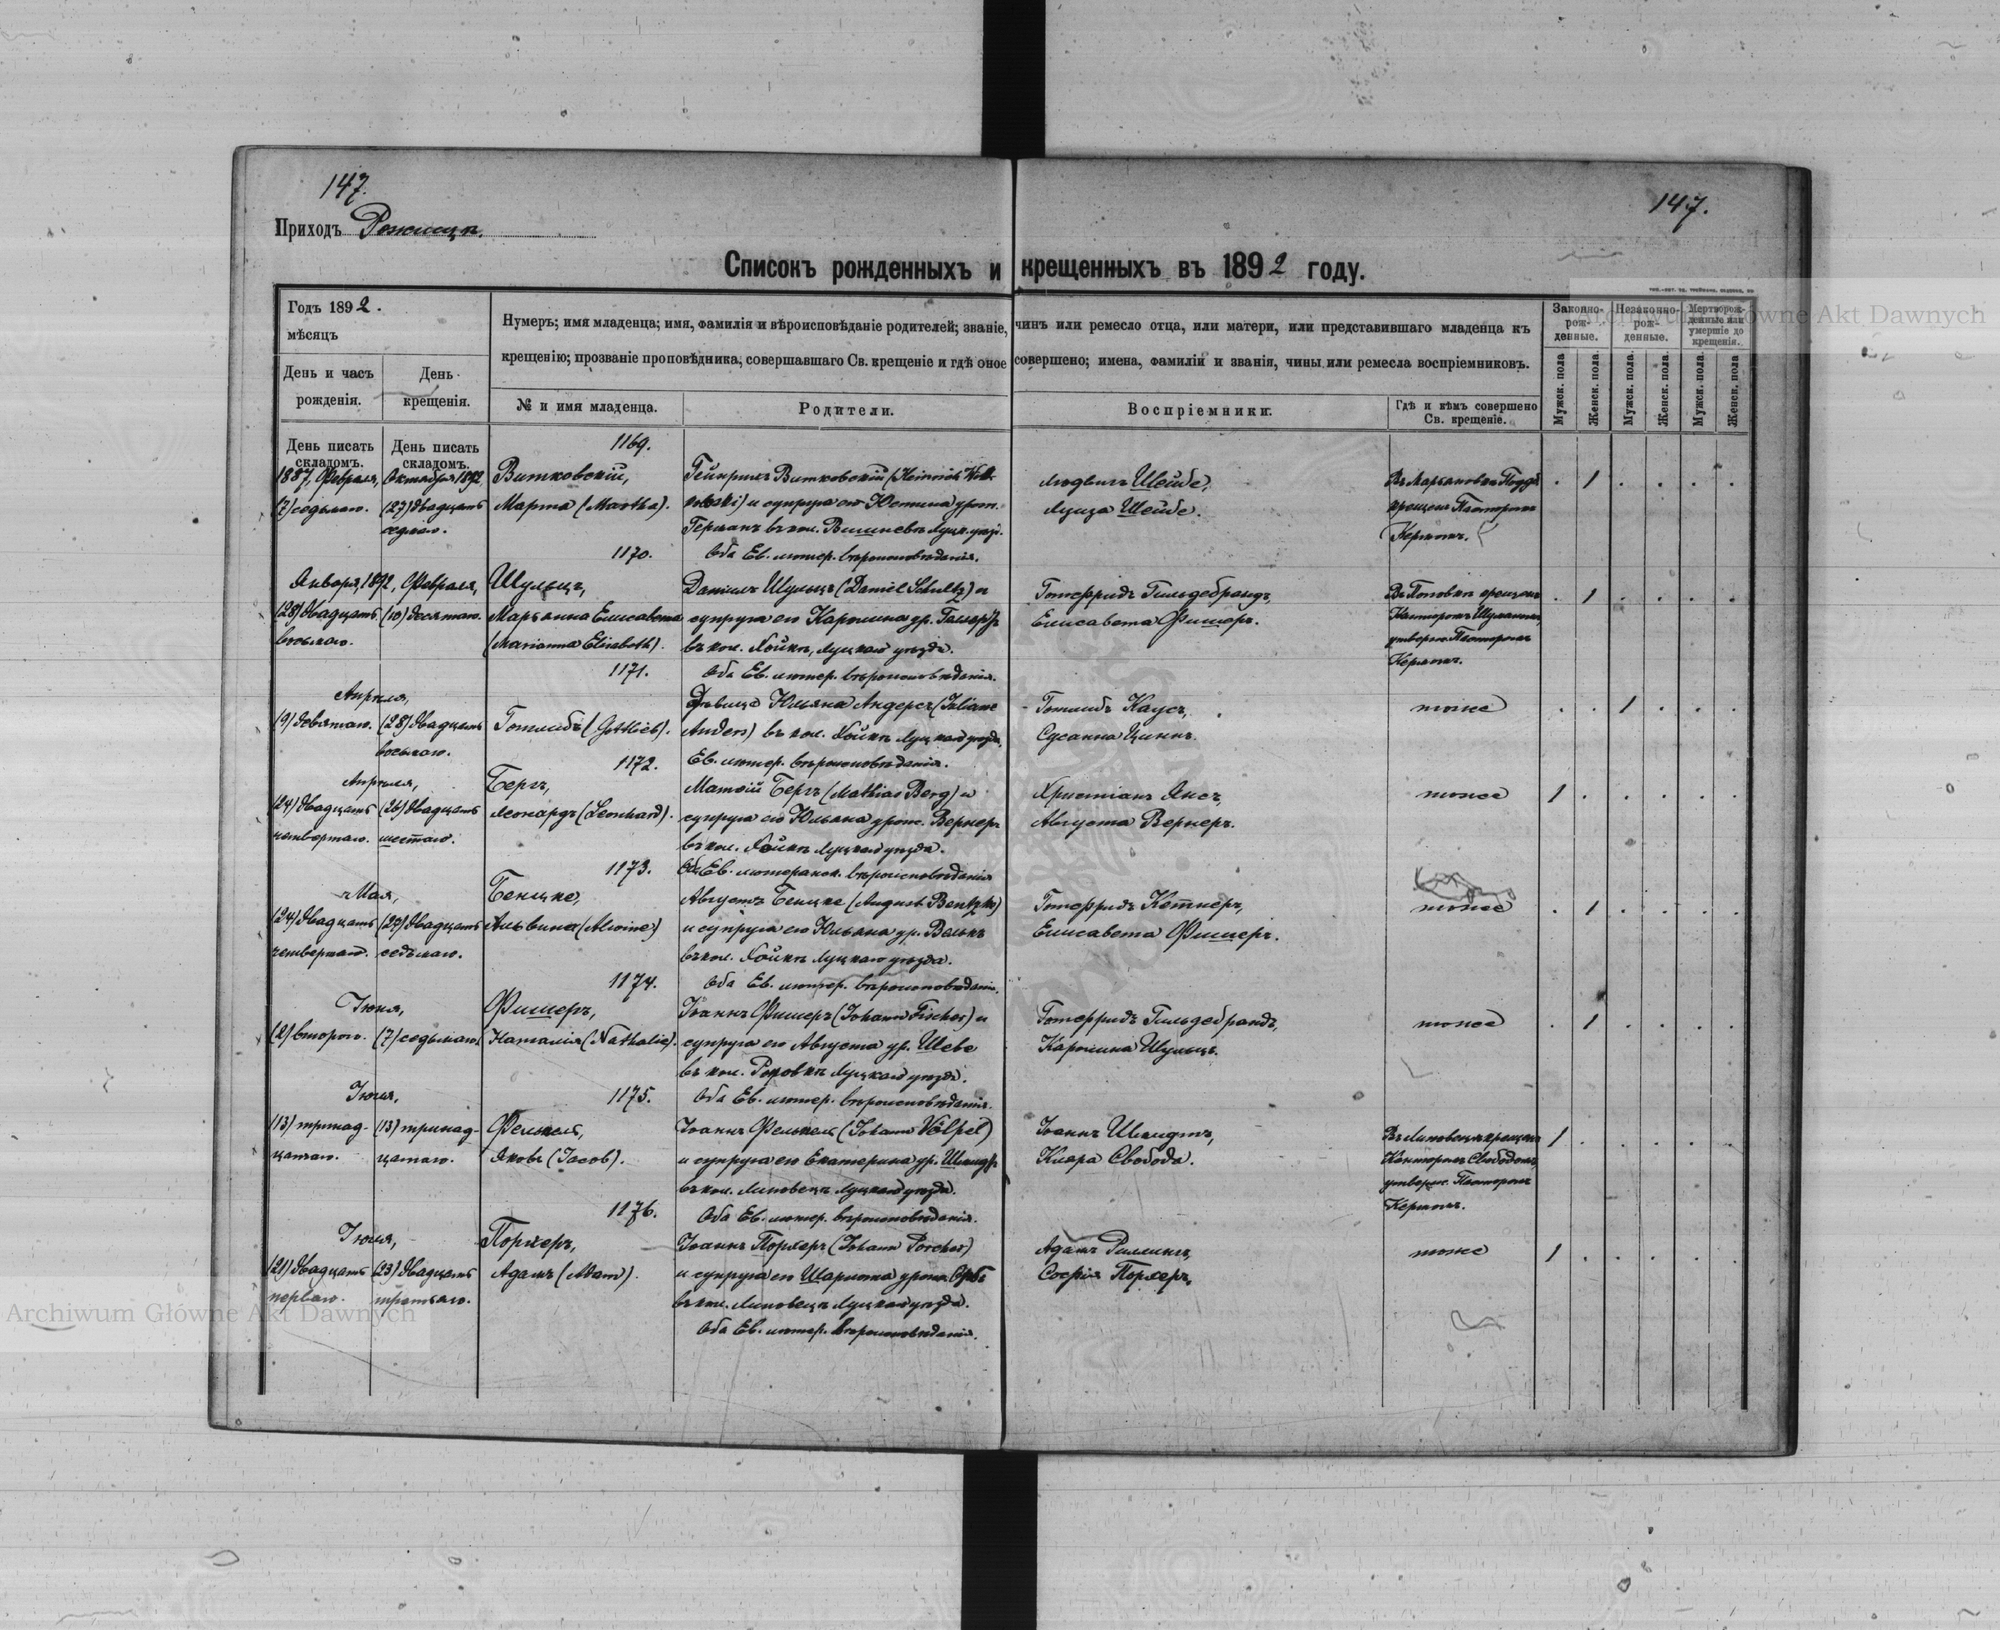 147.
147.
Приходъ Рожище.
Списокъ рожденныхъ и крещенныхъ въ 1892 году.
Годъ 1892.
мѣсяцъ
День и часъ рожденія.
День крещенія.
Нумеръ; имя младенца; имя, фамилія и вѣроисповѣданіе родителей; званіе, чинъ или ремесло отца, или матери, или представившаго младенца къ
крещенію; прозваніе проповѣдника, совершавшаго Св. крещеніе и гдѣ оное совершено; имена, фамиліи и званія, чины или ремесла воспріемниковъ.
№ и имя младенца.
Родители.
Воспріемники.
Гдѣ и кѣмъ совершено Св. крещеніе.
Законно-рож-денные.
Незаконно-рож-денные.
Мертворож-денные или умершіе до крещенія.
Мужск. пола
Женск. пола.
Мужск. пола.
Женск. пола.
Мужск. пола.
Женск. пола
День писать складомъ.
День писать складомъ.
1169.
1887, Февраля, Октября 1892 Витковскій, Гейнрихъ Витковскій (Heinrich Witt- Людвигъ Шейбе, . 1 . . . .
(7) седьмаго. (27) двадцать Марта (Martha). kowski) и супруга его Юстина урож. Луиза Шейбе. крещена Пасторомъ
седьмаго. Германъ въ кол. Вишневъ Луцк. уѣзд. Керммъ.
1170. Оба Ев. лютер. вѣроисповѣданія.
Января, 1892, Февраля, Шульцъ, Даніилъ Шульцъ (Daniel Schultz) и Готфридъ Гильдебрандъ, . 1 . . . .
(28) двадцать (10) десятаго. Марьянна Елисавета супруга его Каролина ур. Елисавета Фишеръ. Канторомъ
восьмаго. (Marianna Elisabeth). въ кол. Луцкаго уѣзда. утверж. Пасторомъ
1171. Оба Ев. лютер. вѣроисповѣданія.
Апрѣля, Дѣвица Юльяна Андерсъ (Juliane Готлибъ Каусъ, тоже . . 1 . . .
(9) девятаго. (28) двадцать Готлибъ (Gottlieb). Anders) въ кол. Луцкаго уѣзда, Сусанна Циннъ.
восьмаго. Ев. лютер. вѣроисповѣданія.
1172.
Апрѣля, Бергъ, Матвій Бергъ (Mathias Berg) и Христіанъ Янсъ, тоже 1 . . . . .
(24) двадцать (26) двадцать Леонардъ (Leonhard). супруга его Юльяна урож. Вернеръ Августа Вернеръ.
четвертаго. шестаго. въ кол. Луцкаго уѣзда.
1173. Оба Ев. лютеранск. вѣроисповѣданія
Мая, Бенцке, Августъ Бенцке (August Bentzke) Готфридъ Кетнеръ, тоже . 1 . . . .
(24) двадцать (27) двадцать Альвина (Alwine) и супруга его Юльяна ур. Елисавета Фишеръ.
четвертаго. седьмаго. въ кол. Луцкаго уѣзда.
1174. Оба Ев. лютер. вѣроисповѣданія.
Іюня, Фишеръ, Іоаннъ Фишеръ (Johann Fischer) и Готфридъ Гильдебрандъ, тоже . 1 . . . .
(2) второго. (7) седьмаго. Наталія (Nathalie). супруга его Августа ур. Шеве Каролина Шульцъ.
въ кол. Луцкаго уѣзда.
1175. Оба Ев. лютер. вѣроисповѣданія.
Іюля,
(13) тринад- (13) тринад- Фелькель, Іоаннъ (Johann Völpel) Іоаннъ Шмидтъ, Въ Липовецъ крещена 1 . . . . .
цатаго. цатаго. Яковъ (Jacob). и супруга его Екатерина ур. Шмидтъ Клара Свобода. Канторомъ Свободою,
въ кол. Липовецъ Луцкаго уѣзда. утверж. Пасторомъ
1176. Оба Ев. лютер. вѣроисповѣданія.
Іюля, Порхеръ, Іоаннъ Порхеръ (Johann Porcher) Адамъ тоже 1 . . . . .
(21) двадцать (23) двадцать Адамъ (Adam). и супруга его Шарлота урож. Софія Порхеръ.
перваго. третьяго. въ кол. Липовецъ Луцкаго уѣзда.
Оба Ев. лютер. вѣроисповѣданія.
Archiwum Główne Akt Dawnych